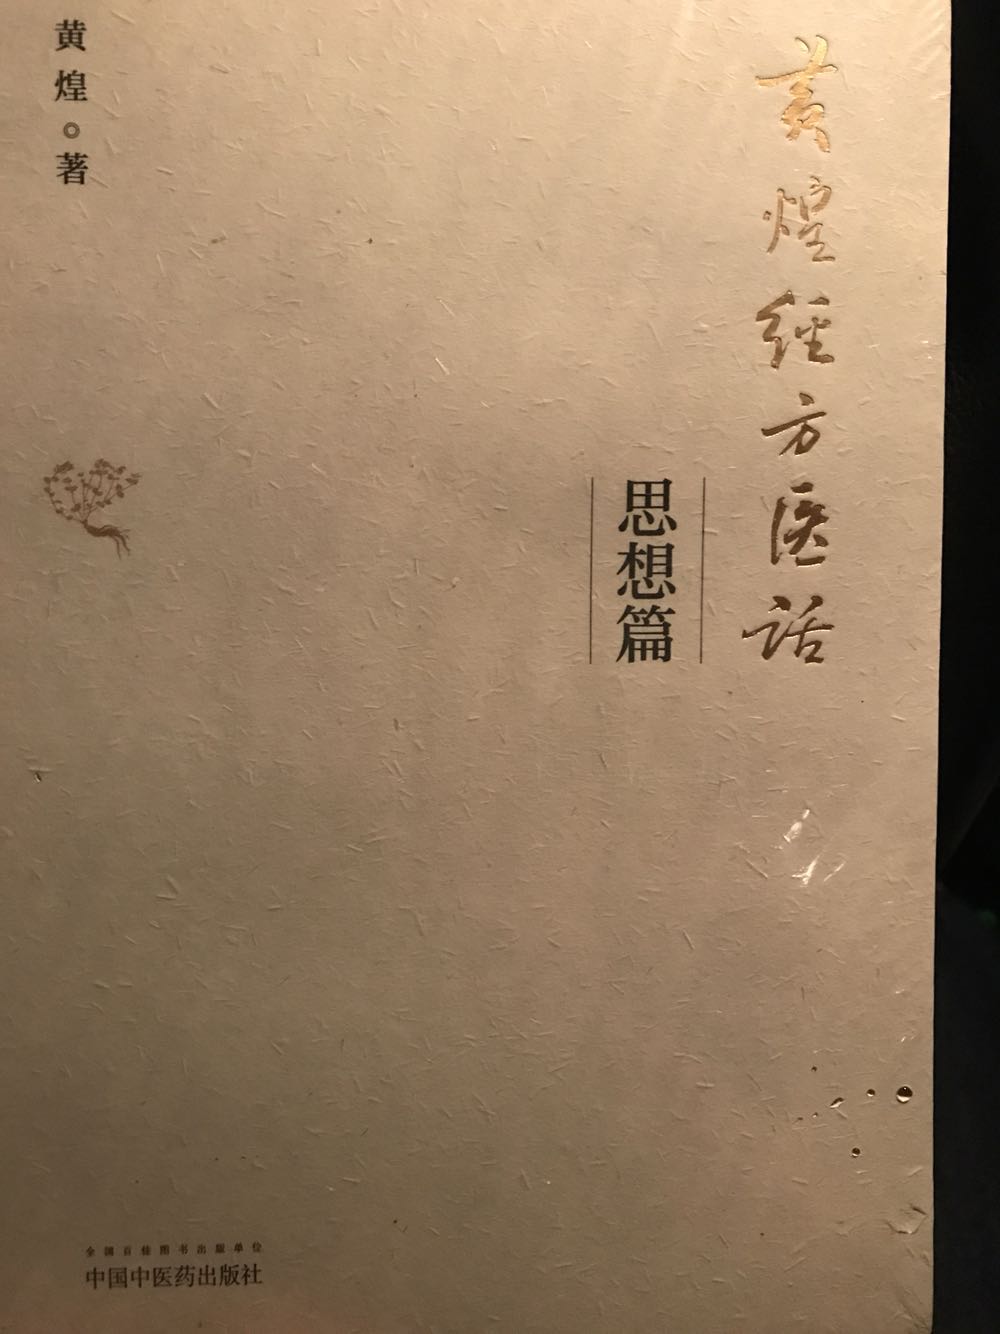 黄煌经方医话
思想篇
黄煌◎著
全国百佳图书出版单位
中国中医药出版社